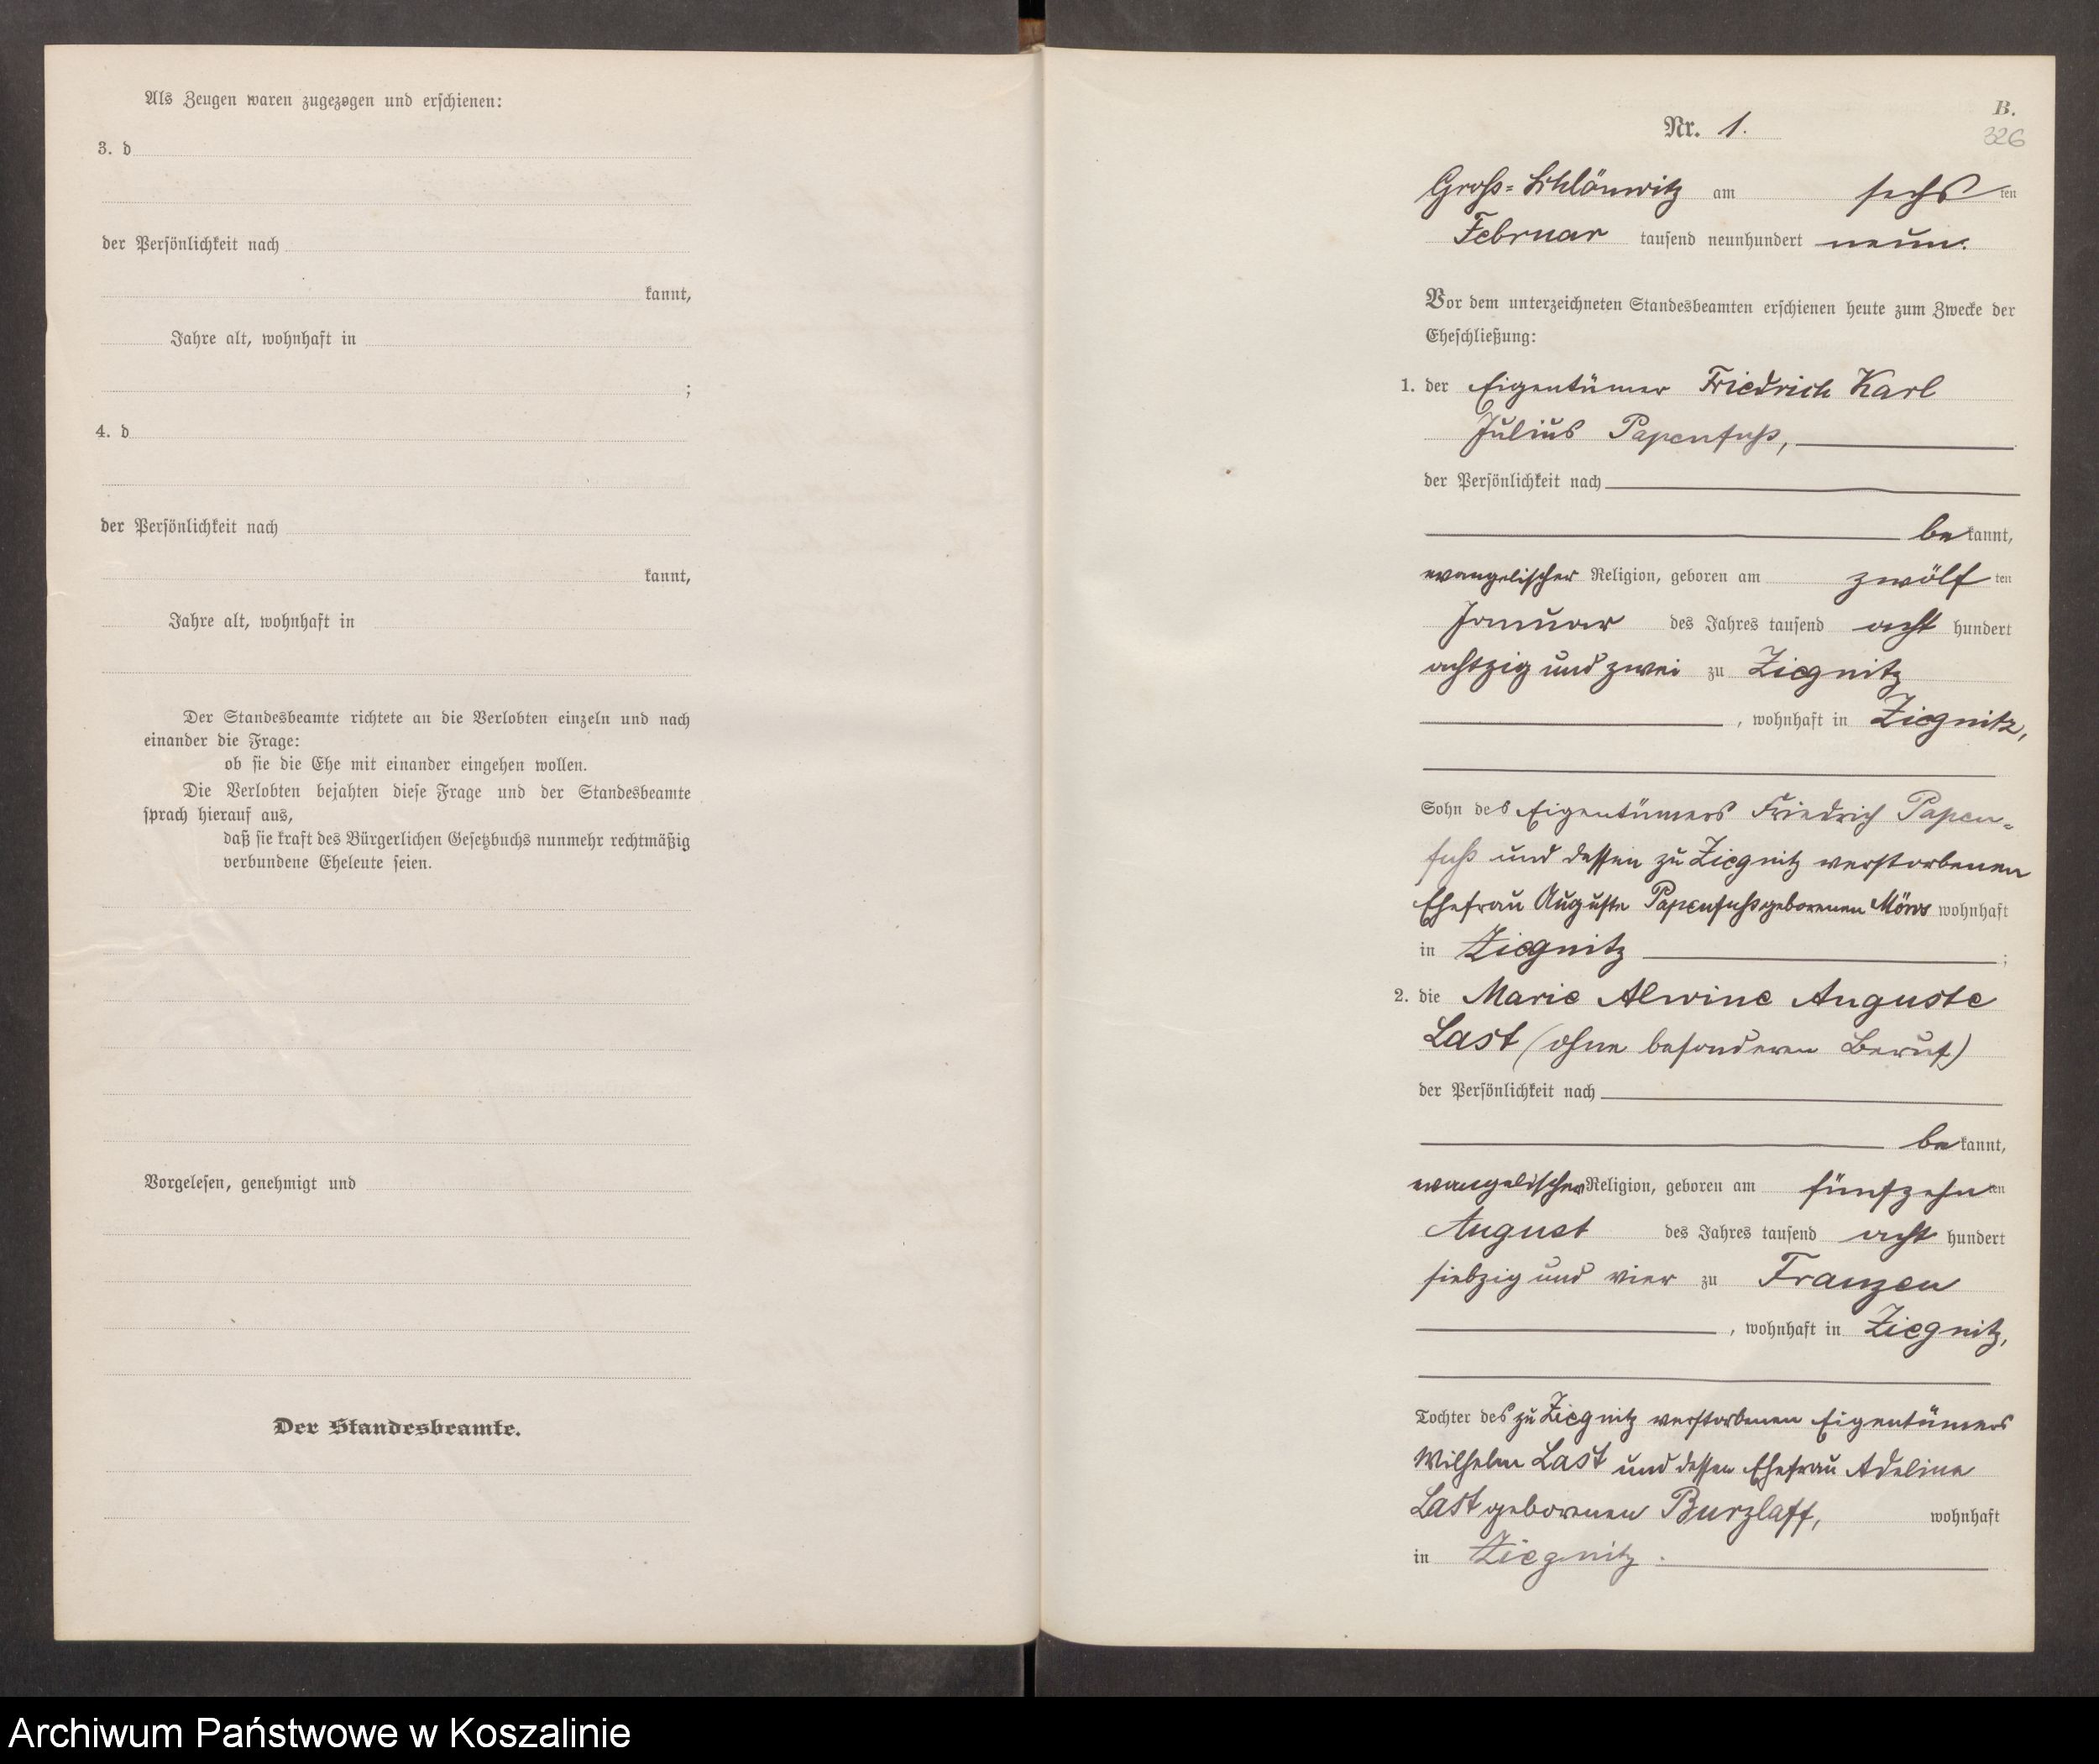 Als Zeugen waren zugezogen und erschienen:
3. d
der Persönlichkeit nach
kannt,
Jahre alt, wohnhaft in
;
4. d
der Persönlichkeit nach
kannt,
Jahre alt, wohnhaft in
Der Standesbeamte richtete an die Verlobten einzeln und nach
einander die Frage:
ob sie die Ehe mit einander eingehen wollen.
Die Verlobten bejahten diese Frage und der Standesbeamte
sprach hierauf aus,
daß sie kraft des Bürgerlichen Gesetzbuchs nunmehr rechtmäßig
verbundene Eheleute seien.
Vorgelesen, genehmigt und
Der Standesbeamte.
B.
Nr. 1.
326
Groß-Schlönwitz am sechsten
Februar tausend neunhundert neun.
Vor dem unterzeichneten Standesbeamten erschienen heute zum Zwecke der
Eheschließung:
1. der Eigentümer Friedrich Karl
Julius Papenfuß,
der Persönlichkeit nach
bekannt,
evangelischer Religion, geboren am zwölften
Januar des Jahres tausend acht hundert
achtzig und zwei zu Ziegnitz
, wohnhaft in Ziegnitz,
Sohn des Eigentümers Friedrich Papen-
fuß und dessen zu Ziegnitz verstorbenen
Ehefrau Auguste Papenfuß geborenen wohnhaft
in Ziegnitz ;
2. die Marie Alwine Auguste
Last (ohne besonderen Beruf)
der Persönlichkeit nach
bekannt,
evangelischer Religion, geboren am fünfzehnten
August des Jahres tausend acht hundert
siebzig und vier zu Franzen
, wohnhaft in Ziegnitz,
Tochter des zu Ziegnitz verstorbenen Eigentümers
Wilhelm Last und dessen Ehefrau Adeline
Last geborenen Burzlaff, wohnhaft
in Ziegnitz.
Archiwum Państwowe w Koszalinie